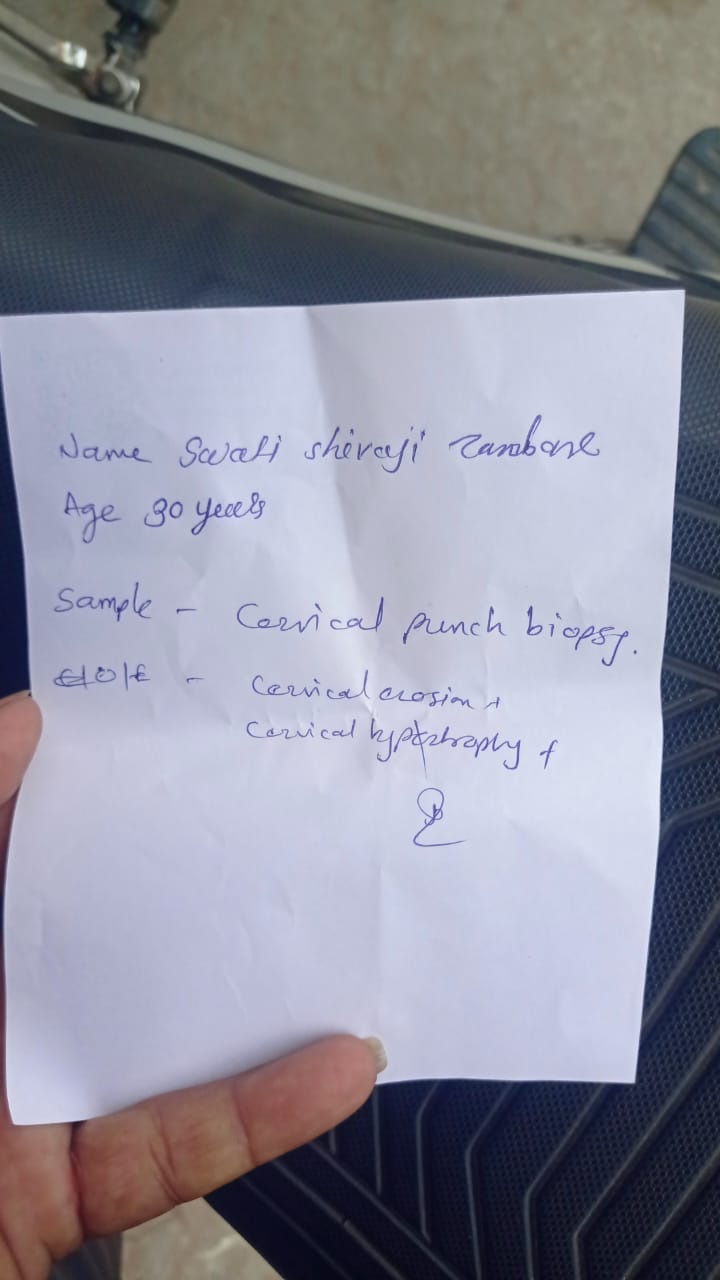 Name Swati Shivaji Zambare
Age 30 years
Sample - Cervical punch biopsy.
- Cervical erosion +
Cervical hypertrophy +